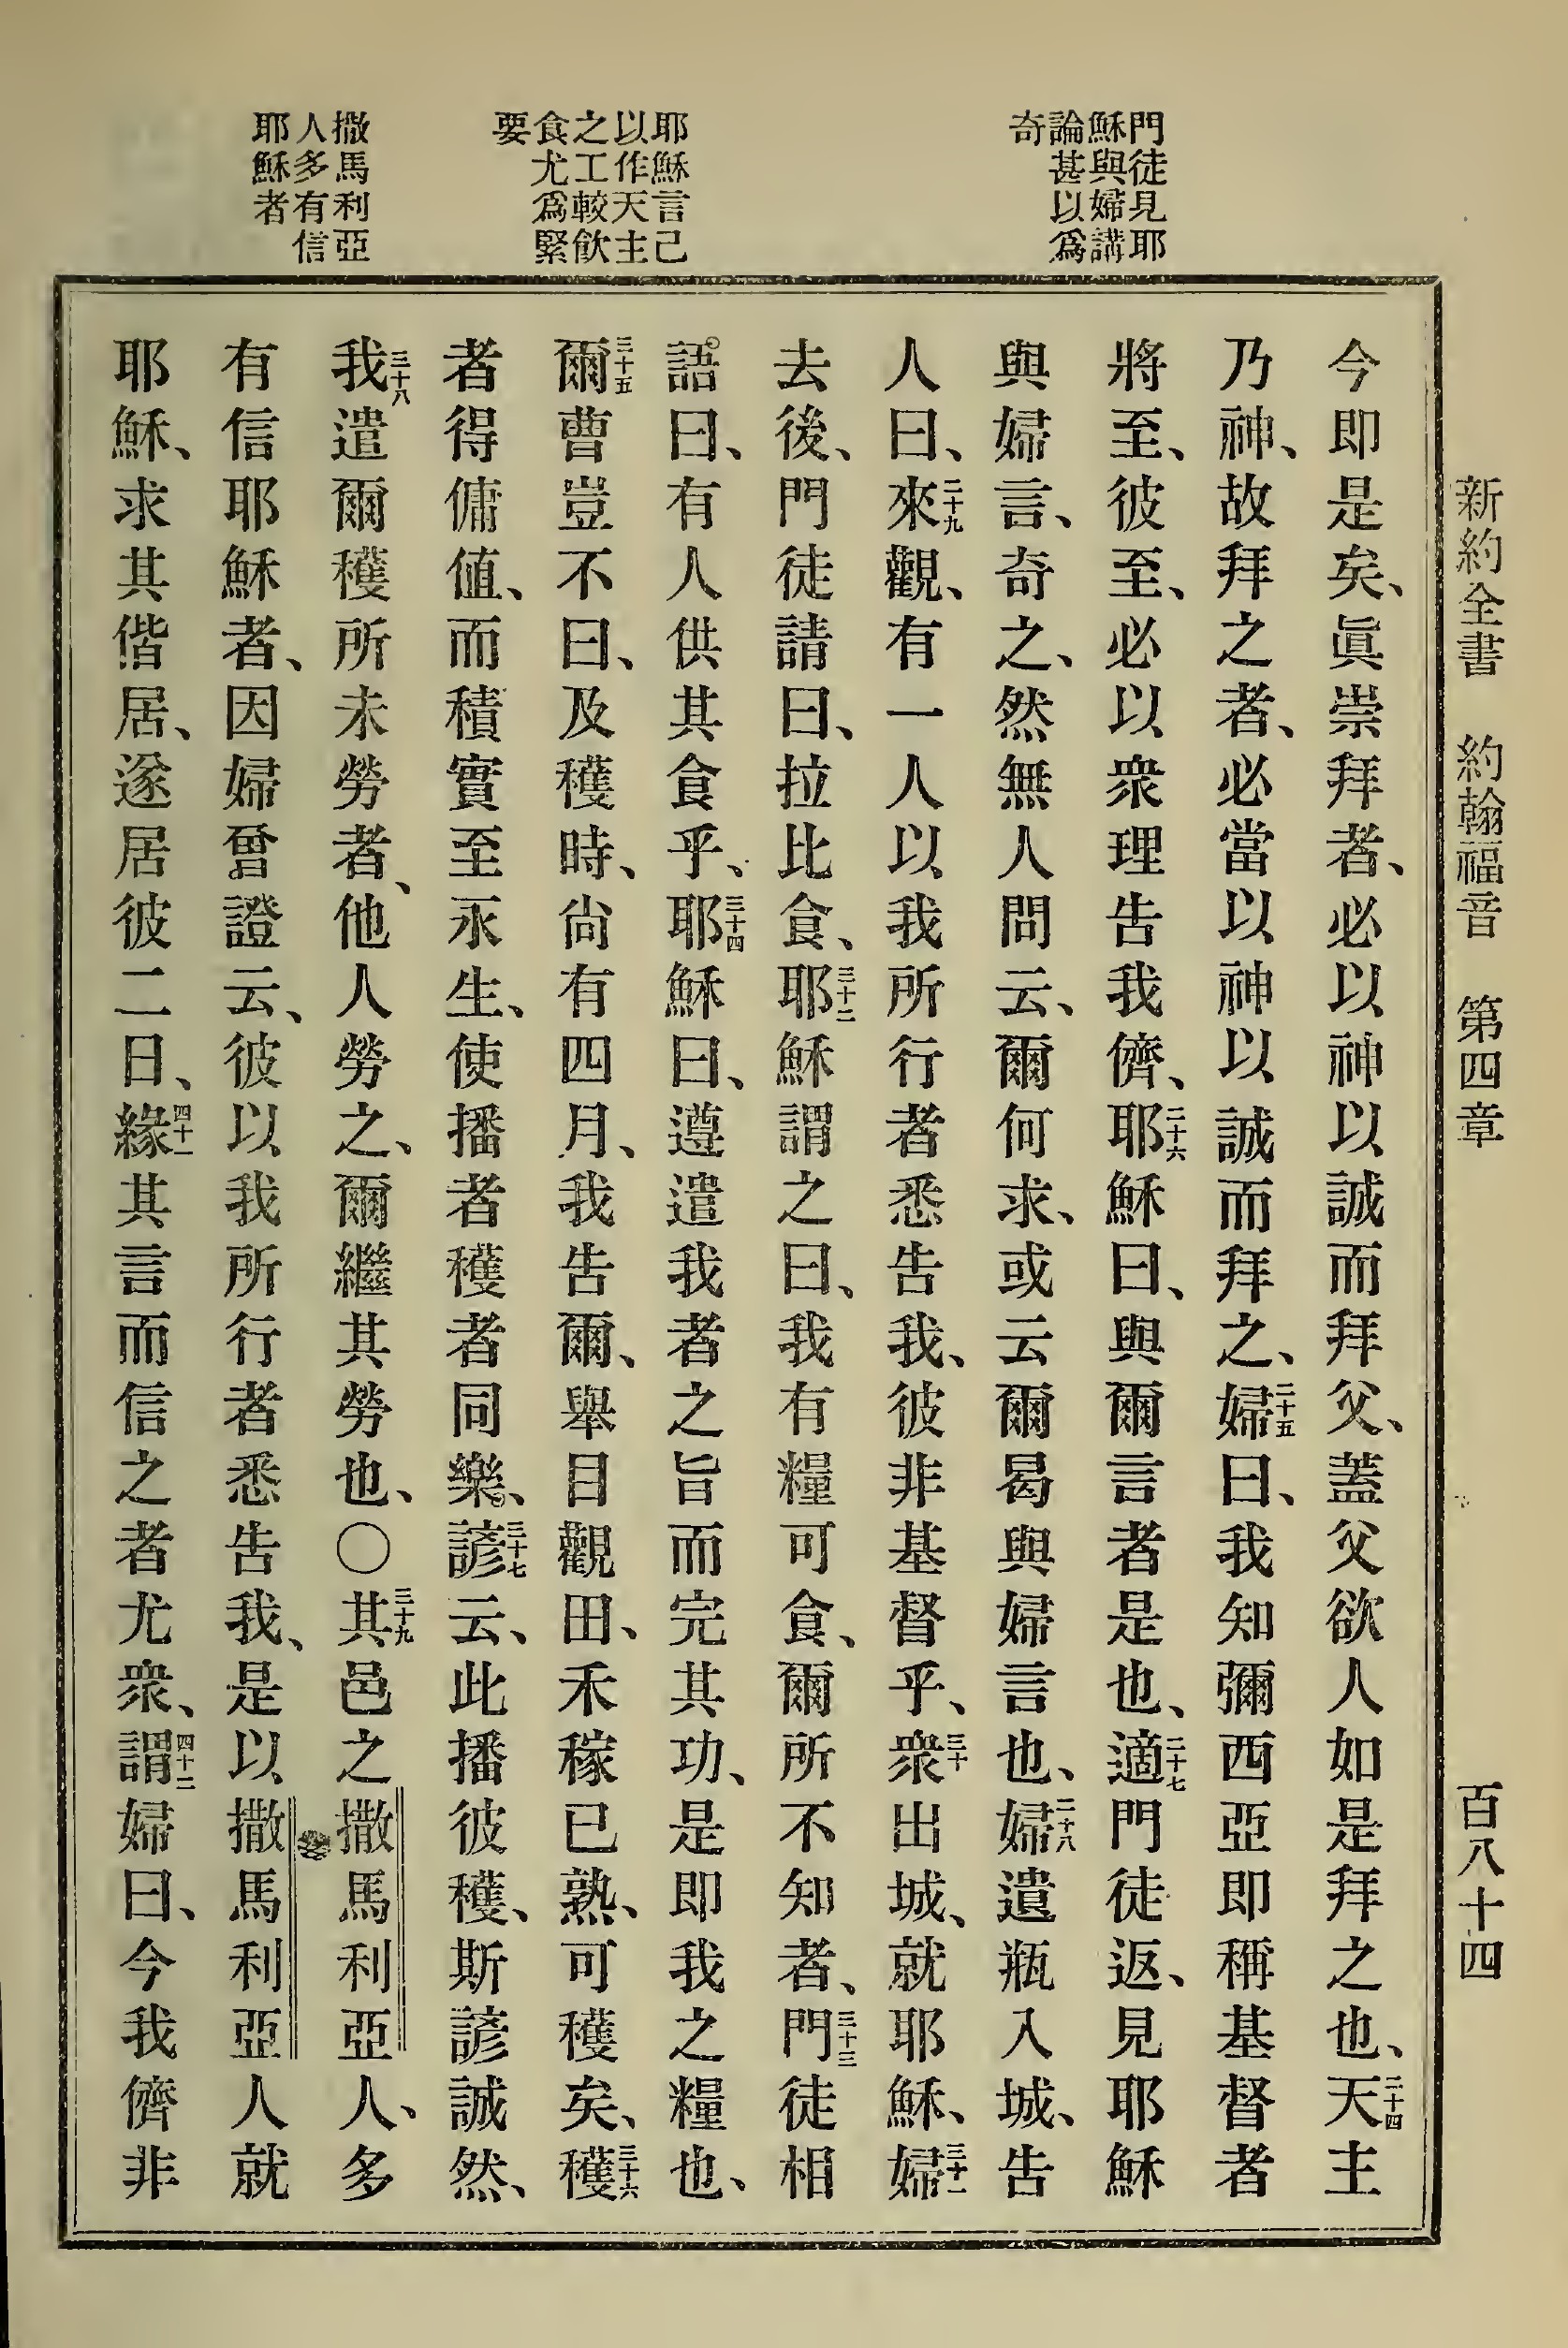 新約全書 約翰福音 第四章 百八十四
門徒見耶
穌與婦講
論甚以爲
奇
耶穌言己
以作天主
之工較飲
食尤爲緊
要
撒馬利亞
人多有信
耶穌者
今即是矣、眞崇拜者、必以神以誠而拜父、蓋父欲人如是拜之也、二十四天主
乃神、故拜之者、必當以神以誠而拜之、二十五婦曰、我知彌西亞即稱基督者
將至、彼至、必以衆理告我儕、二十六耶穌曰、與爾言者是也、二十七適門徒返、見耶穌
與婦言、奇之、然無人問云、爾何求、或云爾曷與婦言也、二十八婦遺瓶入城、告
人曰、二十九來觀、有一人以我所行者悉告我、彼非基督乎、三十衆出城、就耶穌、三十一婦
去後、門徒請曰、拉比食、三十二耶穌謂之曰、我有糧可食、爾所不知者、三十三門徒相
語曰、有人供其食乎、三十四耶穌曰、遵遣我者之旨而完其功、是即我之糧也、
三十五爾曹豈不曰、及穫時、尙有四月、我告爾、舉目觀田、禾稼已熟、可穫矣、三十六穫
者得傭値、而積實至永生、使播者穫者同樂、三十七諺云、此播彼穫、斯諺誠然、
三十八我遣爾穫所未勞者、他人勞之、爾繼其勞也、〇三十九其邑之撒馬利亞人、多
有信耶穌者、因婦曾證云、彼以我所行者悉告我、是以撒馬利亞人就
耶穌、求其偕居、遂居彼二日、四十一緣其言而信之者尤衆、四十二謂婦曰、今我儕非